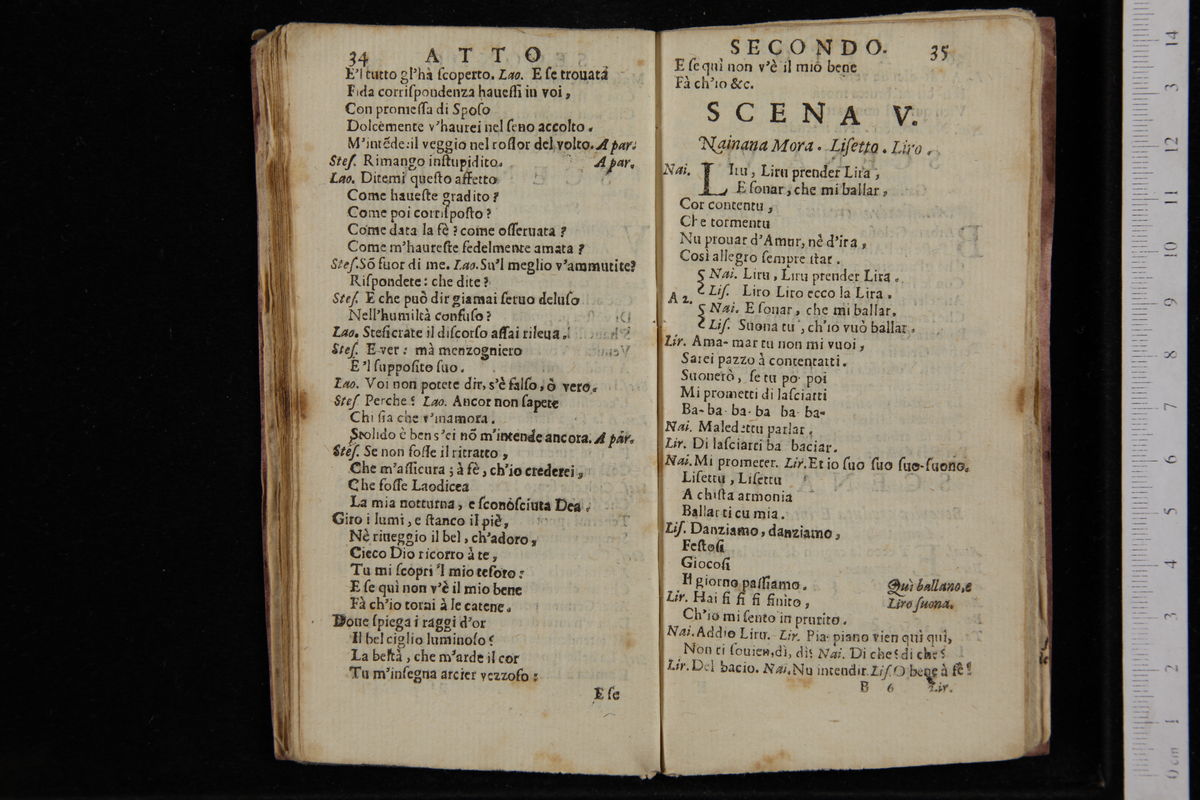 34 ATTO
E'l tutto gl'hà ſcoperto. Lao. E ſe trouata
Fida corriſpondenza haueſſi in voi,
Con promeſſa di Spoſo
Dolcemente v'haurei nel ſeno accolto.
M'intẽde: il veggio nel roſſor del volto. A par.
Steſ. Rimango inſtupidito. A par.
Lao. Ditemi queſto affetto
Come haueſte gradito?
Come poi corriſpoſto?
Come data la fè? come oſſeruata?
Come m'haureſte fedelmente amata?
Steſ. Sõ fuor di me. Lao. Su'l meglio v'ammutite?
Riſpondete: che dite?
Steſ. E che può dir giamai ſeruo deluſo
Nell'humiltà confuſo?
Lao. Steſicrate il diſcorſo aſſai rileua.
Steſ. E ver: mà menzogniero
E'l ſuppoſito ſuo.
Lao. Voi non potete dir, s'è falſo, ò vero.
Steſ Perche? Lao. Ancor non ſapete
Chi ſia che v'inamora.
Stolido è ben s'ei nõ m'intende ancora. A par.
Steſ. Se non foſſe il ritratto,
Che m'aſſicura; à fè, ch'io crederei,
Che foſſe Laodicea
La mia notturna, e ſconoſciuta Dea.
Giro i lumi, e ſtanco il piè,
Nè riueggio il bel, ch'adoro,
Cieco Dio ricorro à te,
Tu mi ſcopri 'l mio teſoro:
E ſe quì non v'è il mio bene
Fà ch'io torni à le catene.
Doue ſpiega i raggi d'or
Il bel ciglio luminoſo?
La beltà, che m'arde il cor
Tu m'inſegna arcier vezzoſo:
E ſe
SECONDO. 35
E ſe quì non v'è il mio bene
Fà ch'io &c.
SCENA V.
Nainana Mora. Liſetto. Liro.
Nai. LIru, Liru prender Lira,
E ſonar, che mi ballar,
Cor contentu,
Che tormentu
Nu prouar d'Amur, nè d'ira,
Così allegro ſempre ſtar.
Nai. Liru, Liru prender Lira.
Liſ. Liro Liro ecco la Lira.
A 2.
Nai. E ſonar, che mi ballar.
Liſ. Suona tu, ch'io vuò ballar.
Lir. Ama- mar tu non mi vuoi,
Sarei pazzo à contentarti.
Suonerò, ſe tu po- poi
Mi prometti di laſciarti
Ba- ba- ba- ba ba- ba-
Nai. Maledettu parlar.
Lir. Di laſciarti ba baciar.
Nai. Mi prometer. Lir. Et io ſuo ſuo ſuo-ſuono.
Liſettu, Liſettu
A chiſta armonia
Ballar ti cu mia.
Liſ. Danziamo, danziamo,
Feſtoſi
Giocoſi
Il giorno paſſiamo. Quì ballano, e
Lir. Hai fi fi fi finito, Liro ſuona.
Ch'io mi ſento in prurito.
Nai. Addio Liru. Lir. Pia- piano vien qui quì,
Non ti ſouien, dì, dì? Nai. Di che? di che?
Lir. Del bacio. Nai. Nu intendir. Liſ. O bene à fè!
B 6 Lir.